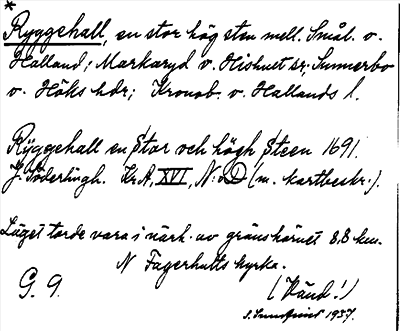 *
Ryggehall, en stor hög sten mell. Smål. o.
Halland; Markaryd o. Hishult sr; Sunnerbo
o. Höks hdr; Kronob. o. Hallands l.
Rÿggehall en stor och högh steen 1691.
J. Söderlingh. Kr.A, XVI, N: D (m. kartbeskr.).
Läget torde vara i närh. av gränshörnet 8,8 km.
N Fagerhults kyrka.
G. 9.
(Vänd!)
1937.